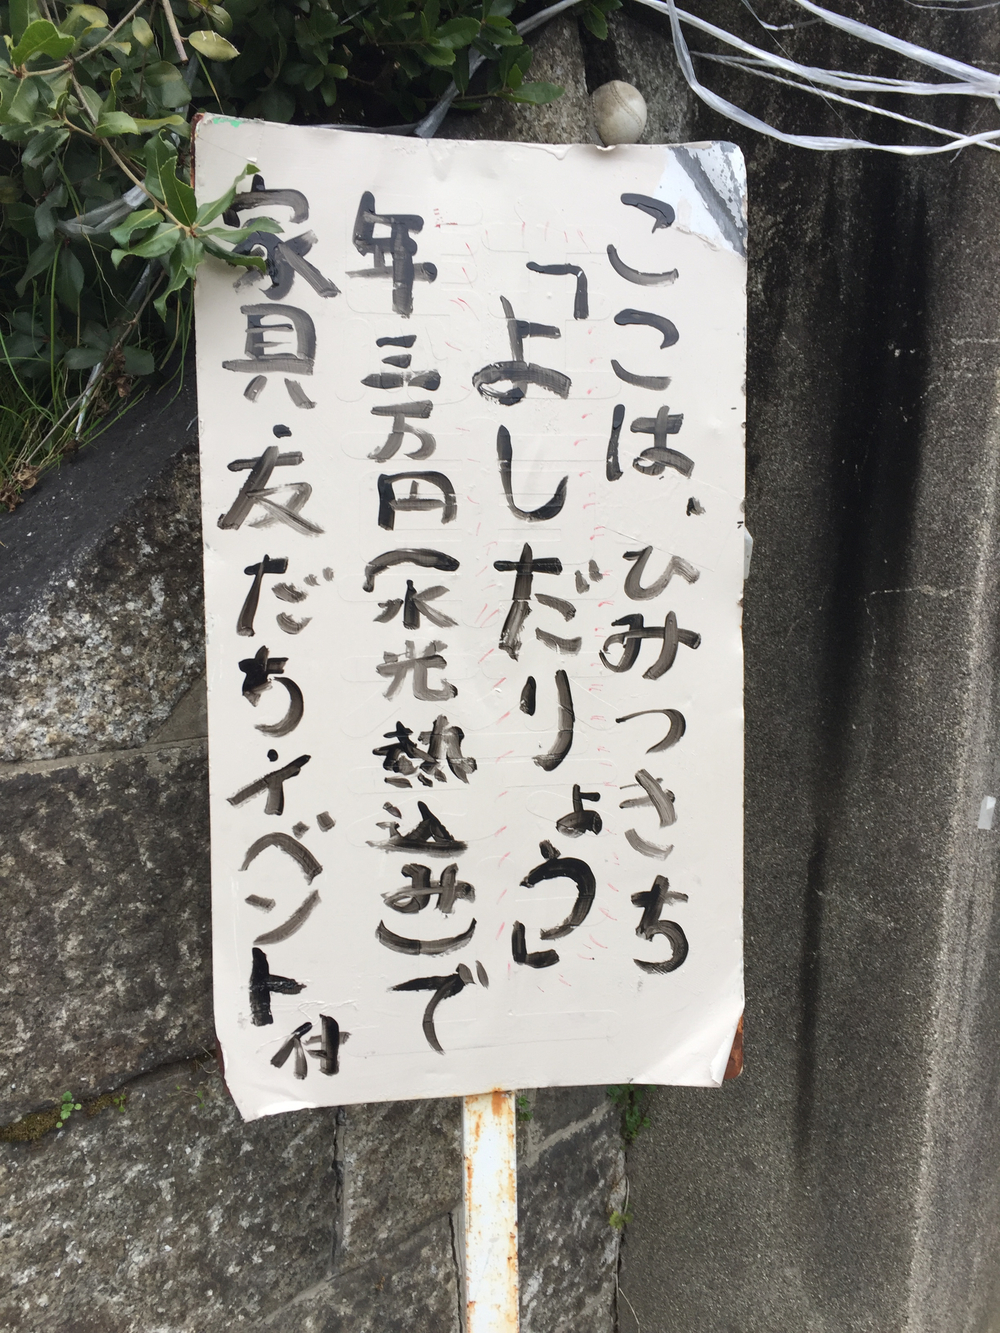 ここは、ひみつきち
「よしだりょう」
年三万円(水光熱込み)で
家具・友だち・イベント付